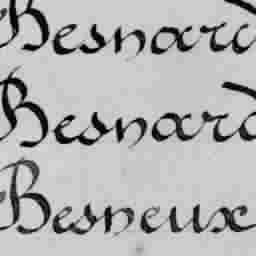 Besnard
Besnard
Besneux